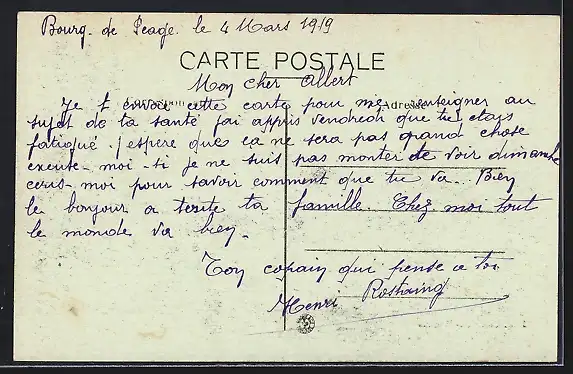 Bourg. de Peage. le 4 Mars 1919
CARTE POSTALE
Mon cher Albert
Correspondance Adresse
Je t envoi cette carte pour me renseigner au
sujet de ta santé j'ai appris vendredi que tu etais
fatigué. j espere que ca ne sera pas grand chose
excuse-moi si je ne suis pas monter te voir dimanche
ecris-moi pour savoir comment que tu va. Bien
le bonjour a toute ta famille. Chez moi tout
le monde va bien.
Ton copain qui pense a toi
Henri Rostaing